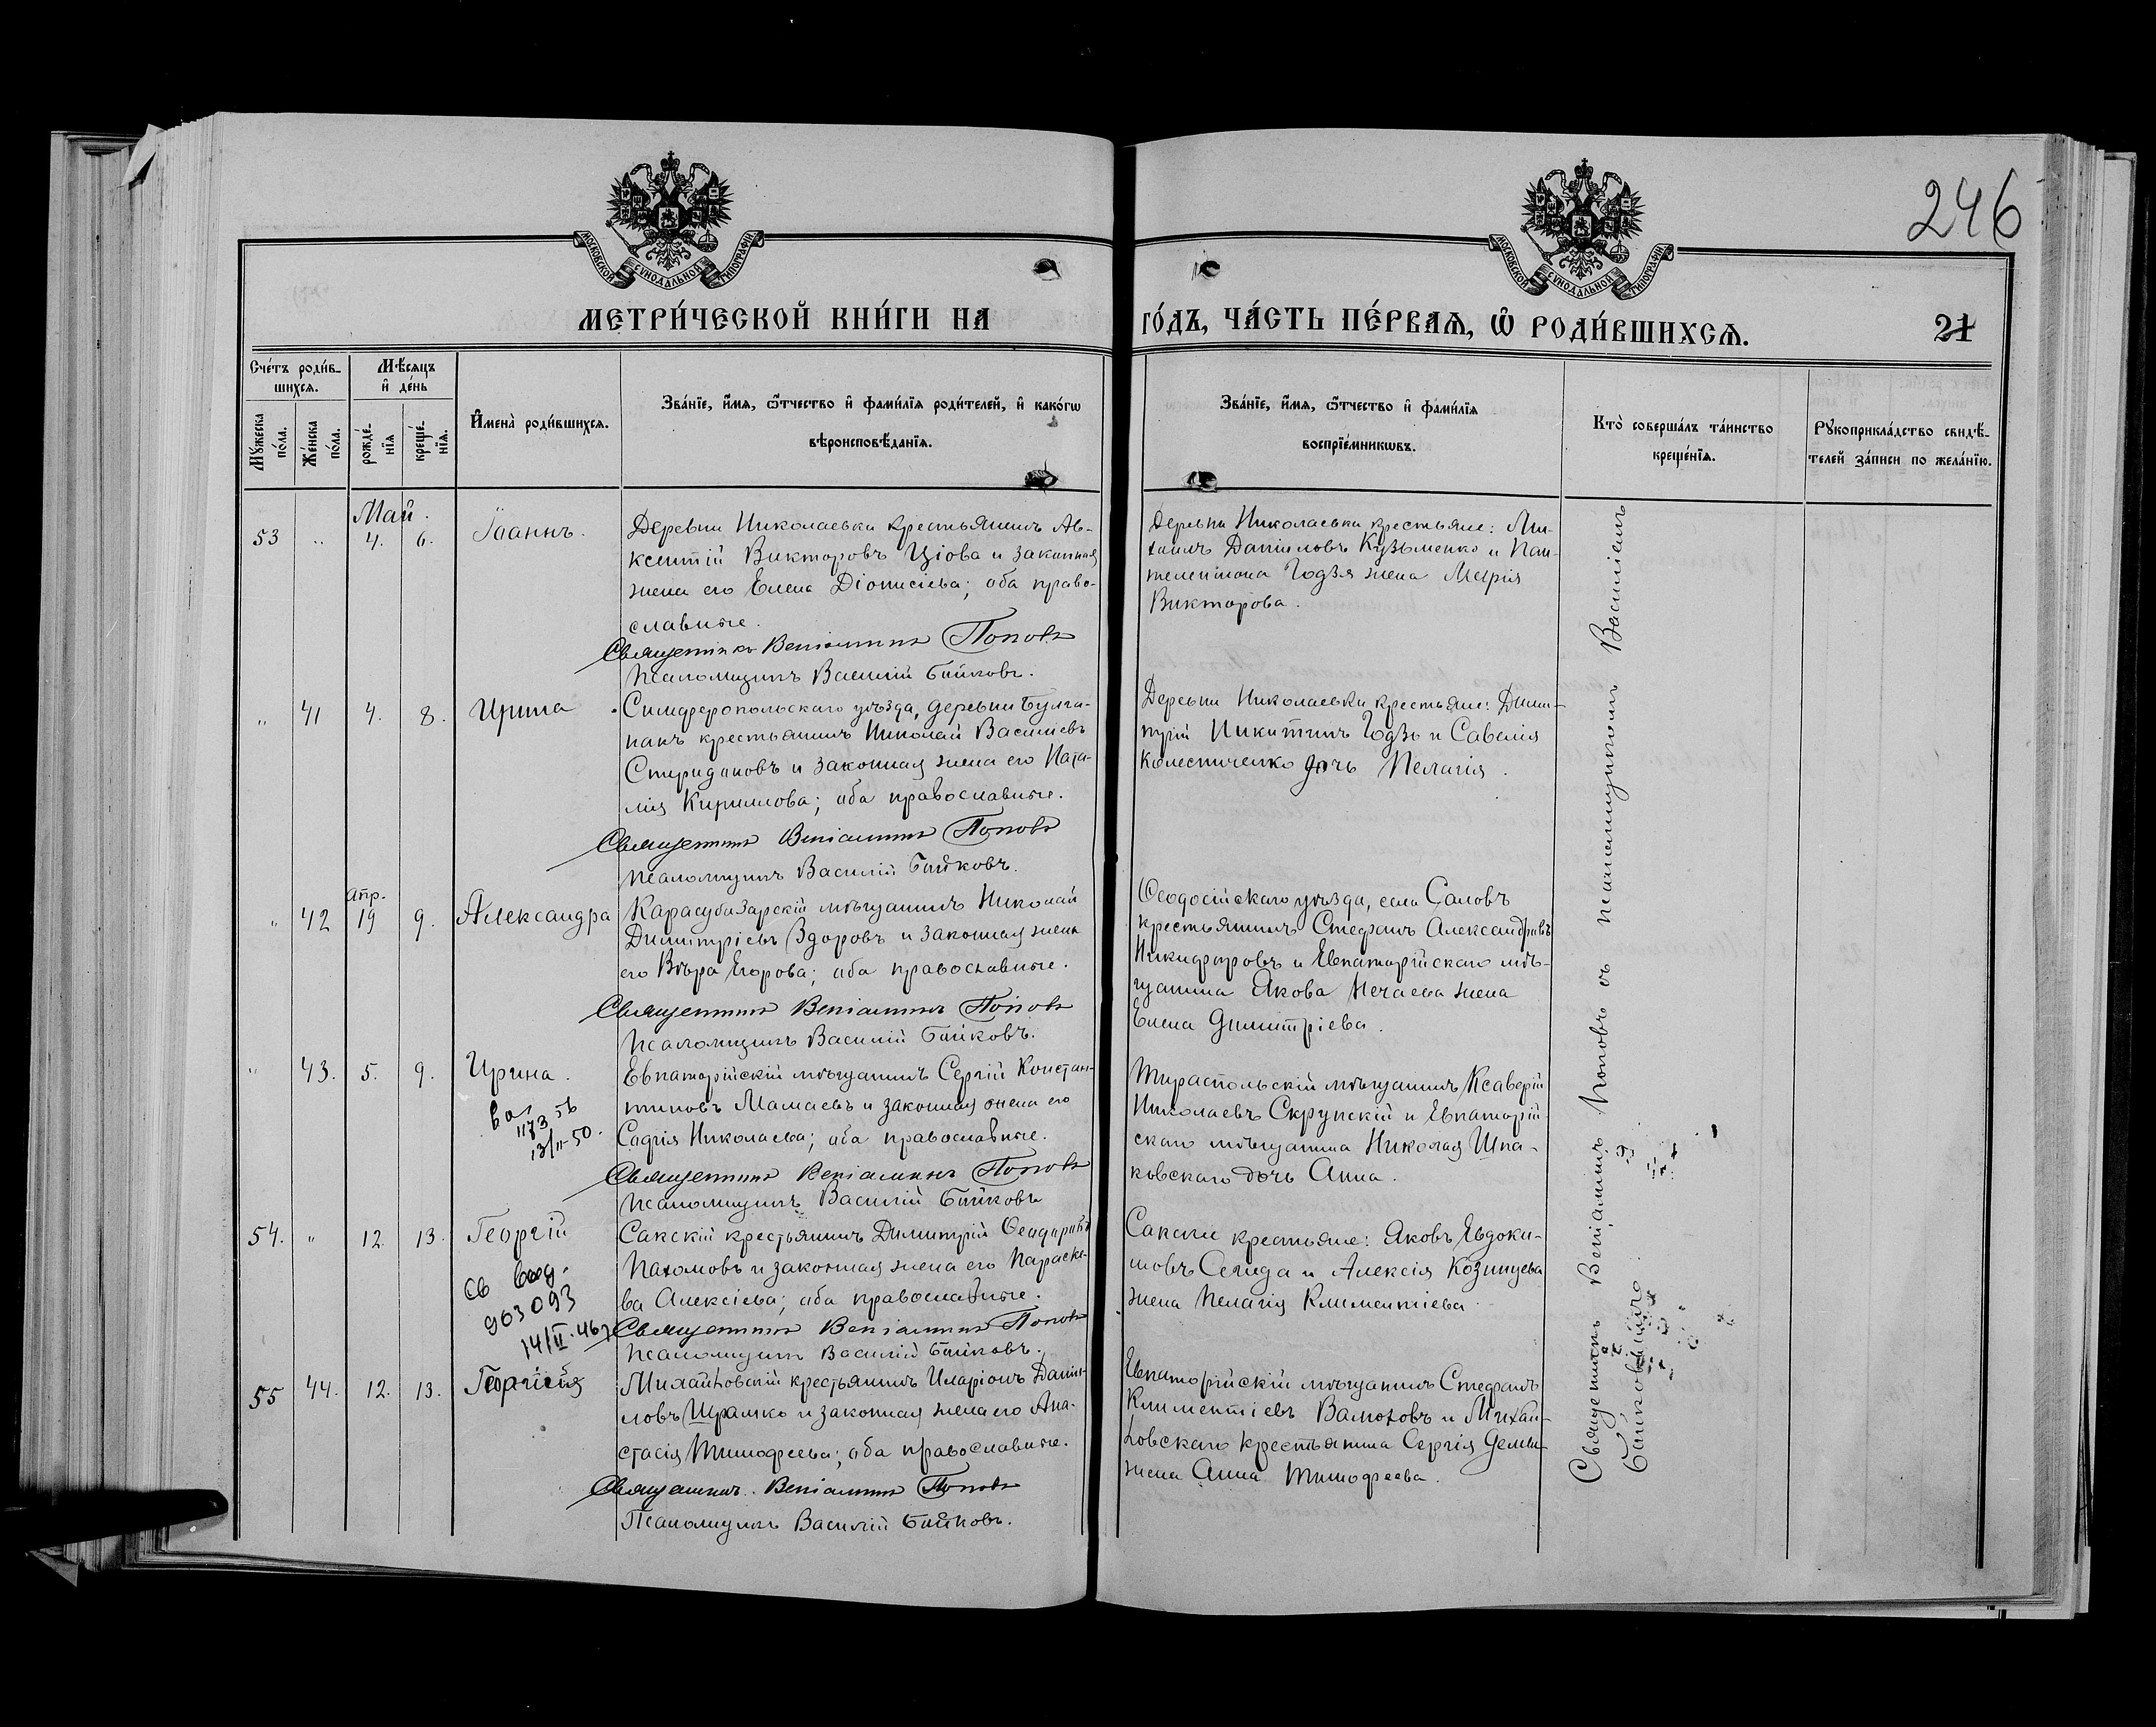 246
МОСКОВСКОЙ СѴНОДАЛЬНОЙ ТИПОГРАФІИ
МОСКОВСКОЙ СѴНОДАЛЬНОЙ ТИПОГРАФІИ
МЕТРИ́ЧЕСКОЙ КНИ́ГИ НА
ГО́ДЪ, ЧА́СТЬ ПЕ́РВАѦ, Ѿ РОДИ́ВШИХСѦ.
21
Сче́тъ роди́в-
шихсѧ.
Мꙋжеска
по́ла.
Же́нска
по́ла.
Мѣ́сѧцъ
и҆ де́нь
рожде́-
нїѧ
креще́-
нїѧ.
И҆мена̀ роди́вшихсѧ.
Зва́нїе, и҆́мѧ, ѻ҆́тчество и҆ фами́лїѧ роди́телей, и҆ како́гѡ
вѣроисповѣ́данїѧ.
Зва́нїе, и҆́мѧ, ѻ҆́тчество и҆ фами́лїѧ
воспрїе́мникѡвъ.
Кто̀ соверша́лъ та́инство
креще́нїѧ.
Рꙋкоприкла́дство свидѣ́-
телей за́писи по жела́нїю.
Май.
53 " 4. 6. Іоаннъ.
Деревни Николаевки крестьянинъ Ав-
ксентій Викторовъ Цiова и законная
жена его Елена Діонисіева; оба право-
славные.
Священникъ Веніаминъ Поповъ
Псаломщикъ Василій Байковъ.
Деревни Николаевки крестьяне: Ми-
хаилъ Даніиловъ Кузьменко и Пан-
телеимона Годзя жена Марія
Викторова.
" 41 4. 8. Ирина
Симферопольскаго уѣзда, деревни Булга-
накъ крестьянинъ Николай Васильевъ
Спиридоновъ и законная жена его Ната-
лія Кириллова; оба православные.
Священникъ Веніаминъ Поповъ
Псаломщикъ Василій Байковъ.
Деревни Николаевки крестьяне: Дими-
трій Никитинъ Годзь и Савелія
Колестиченко дочь Пелагія.
Апр.
" 42 19 9. Александра
Карасубазарскій мѣщанинъ Николай
Димитріевъ Здоровъ и законная жена
его Вѣра Егорова; оба православные.
Священникъ Веніаминъ Поповъ
Псаломщикъ Василій Байковъ.
Ѳеодосійскаго уѣзда, села Саловъ
крестьянинъ Стефанъ Александровъ
Никифоровъ и Евпаторійскаго мѣ-
щанина Якова Нечаева жена
Елена Димитріева.
" 43. 5. 9. Ирина.
1173
13/II-50.
Евпаторійскій мѣщанинъ Сергій Констан-
тиновъ Мамаевъ и законная жена его
Софія Николаева; оба православные.
Священникъ Веніаминъ Поповъ
Псаломщикъ Василій Байковъ
Тираспольскій мѣщанинъ Ксаверій
Николаевъ Скрупскій и Евпаторій-
скаго мѣщанина Николая Шпа-
ковскаго дочь Анна.
54. " 12. 13. Георгій
Св
903093
14/II-46
Сакскій крестьянинъ Димитрій Ѳеодоровъ
Пахомовъ и законная жена его Параске-
ва Алексіева; оба православные.
Священникъ Веніаминъ Поповъ
Псаломщикъ Василій Байковъ.
Сакскіе крестьяне: Яковъ Евдоки-
мовъ Сегида и Алексія Козинцева
жена Пелагія Климентіева.
55 44. 12. 13.
Михайловскій крестьянинъ Иларіонъ Даніи-
ловъ Шрамко и законная жена его Ана-
стасія Тимофеева; оба православные.
Священникъ Веніаминъ Поповъ
Псаломщикъ Василій Байковъ.
Евпаторійскій мѣщанинъ Стефанъ
Климентіевъ и Михай-
ловскаго крестьянина Сергія
жена Анна Тимофеева.
Священникъ Веніаминъ Поповъ съ псаломщикомъ Василіемъ